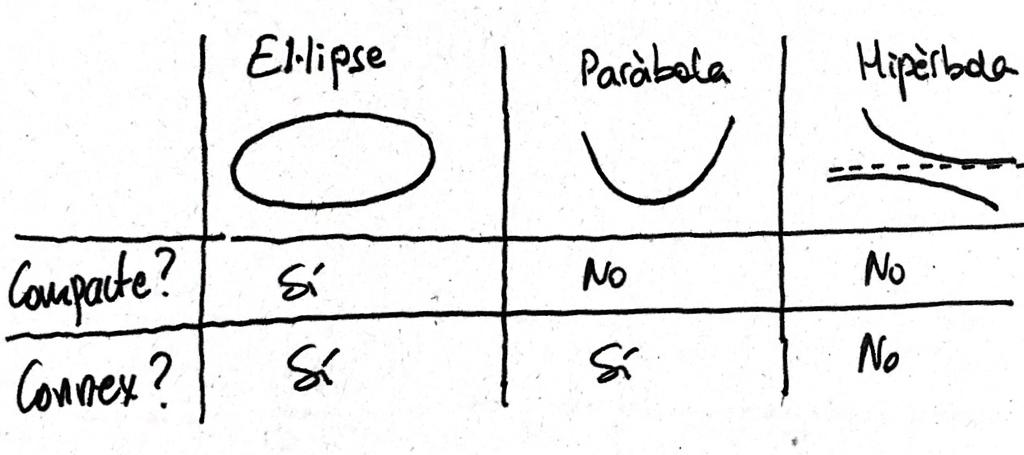 El·lipse Paràbola Hipèrbola
Compacte? Sí No No
Connex? Sí Sí No